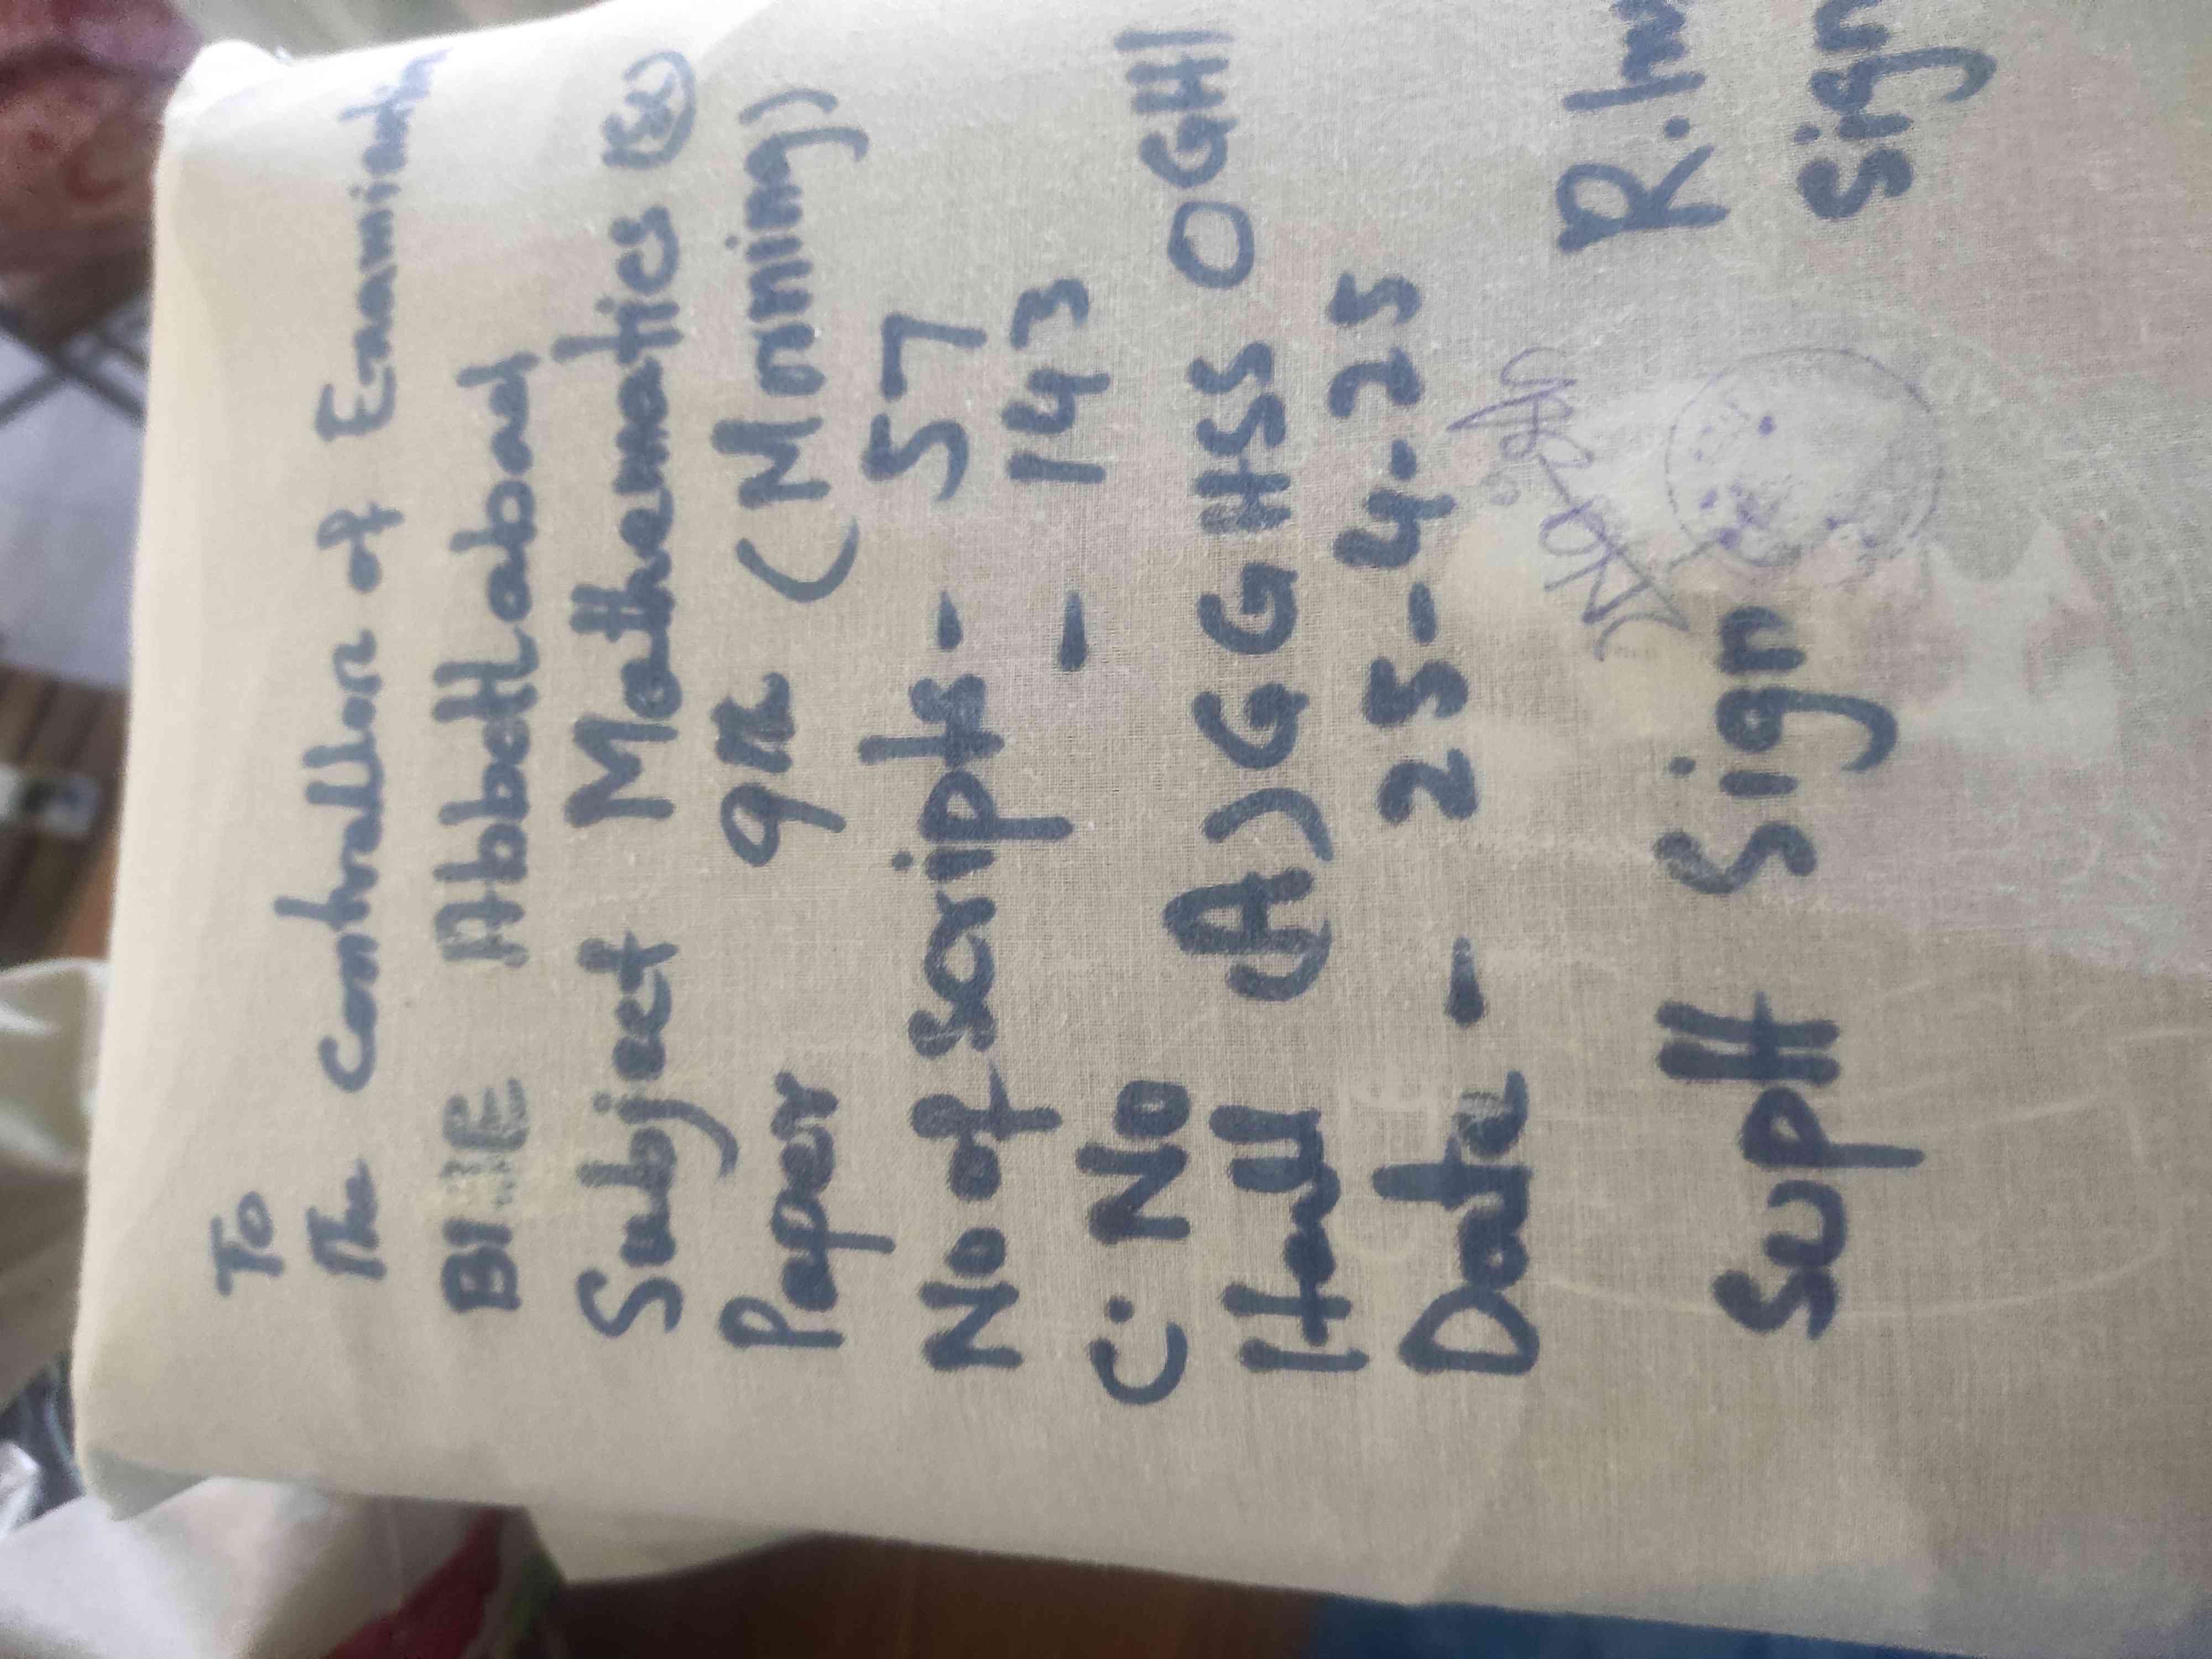 To
The Controller of Examination
BISE Abbottabad
Subject Mathematics (Sc)
Paper 9th (Morning)
No of Scripts - 57
C. No - 143
Hall (A) GGHSS OGHI
Date - 25-4-25
R.
Supdt Sign Sign